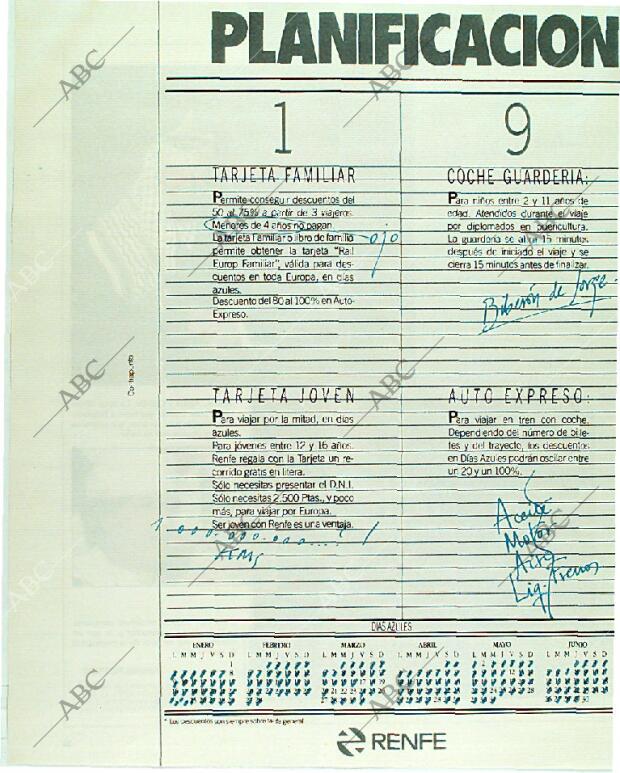 PLANIFICACION
1
TARJETA FAMILIAR
Permite conseguir descuentos del
50 al 75% a partir de 3 viajeros.
Menores de 4 años no pagan.
La tarjeta Familiar o libro de familia
permite obtener la tarjeta "Rail
Europ Familiar", válida para des-
cuentos en toda Europa, en días
azules.
Descuento del 80 al 100% en Auto-
Expreso.
ojo
9
COCHE GUARDERIA:
Para niños entre 2 y 11 años de
edad. Atendidos durante el viaje
por diplomados en puericultura.
La guardería se abre 15 minutos
después de iniciado el viaje y se
cierra 15 minutos antes de finalizar.
Biberón de Jorge.
Contrapunto
TARJETA JOVEN
Para viajar por la mitad, en días
azules.
Para jóvenes entre 12 y 16 años.
Renfe regala con la Tarjeta un re-
corrido gratis en litera.
Sólo necesitas presentar el D.N.I.
Sólo necesitas 2.500 Ptas., y poco
más, para viajar por Europa.
Ser joven con Renfe es una ventaja.
1.000.000.000...!
AUTO EXPRESO:
Para viajar en tren con coche.
Dependiendo del número de bille-
tes y del trayecto, los descuentos
en Días Azules podrán oscilar entre
un 20 y un 100%.
Aceite
Motor
Aire
Liq. frenos
DIAS AZULES
ENERO FEBRERO MARZO ABRIL MAYO JUNIO
L M M J V S D L M M J V S D L M M J V S D L M M J V S D L M M J V S D L M M J V S D
* Los descuentos son siempre sobre tarifa general
RENFE
ABC
ABC
ABC
ABC
ABC
ABC
ABC
ABC
ABC
ABC